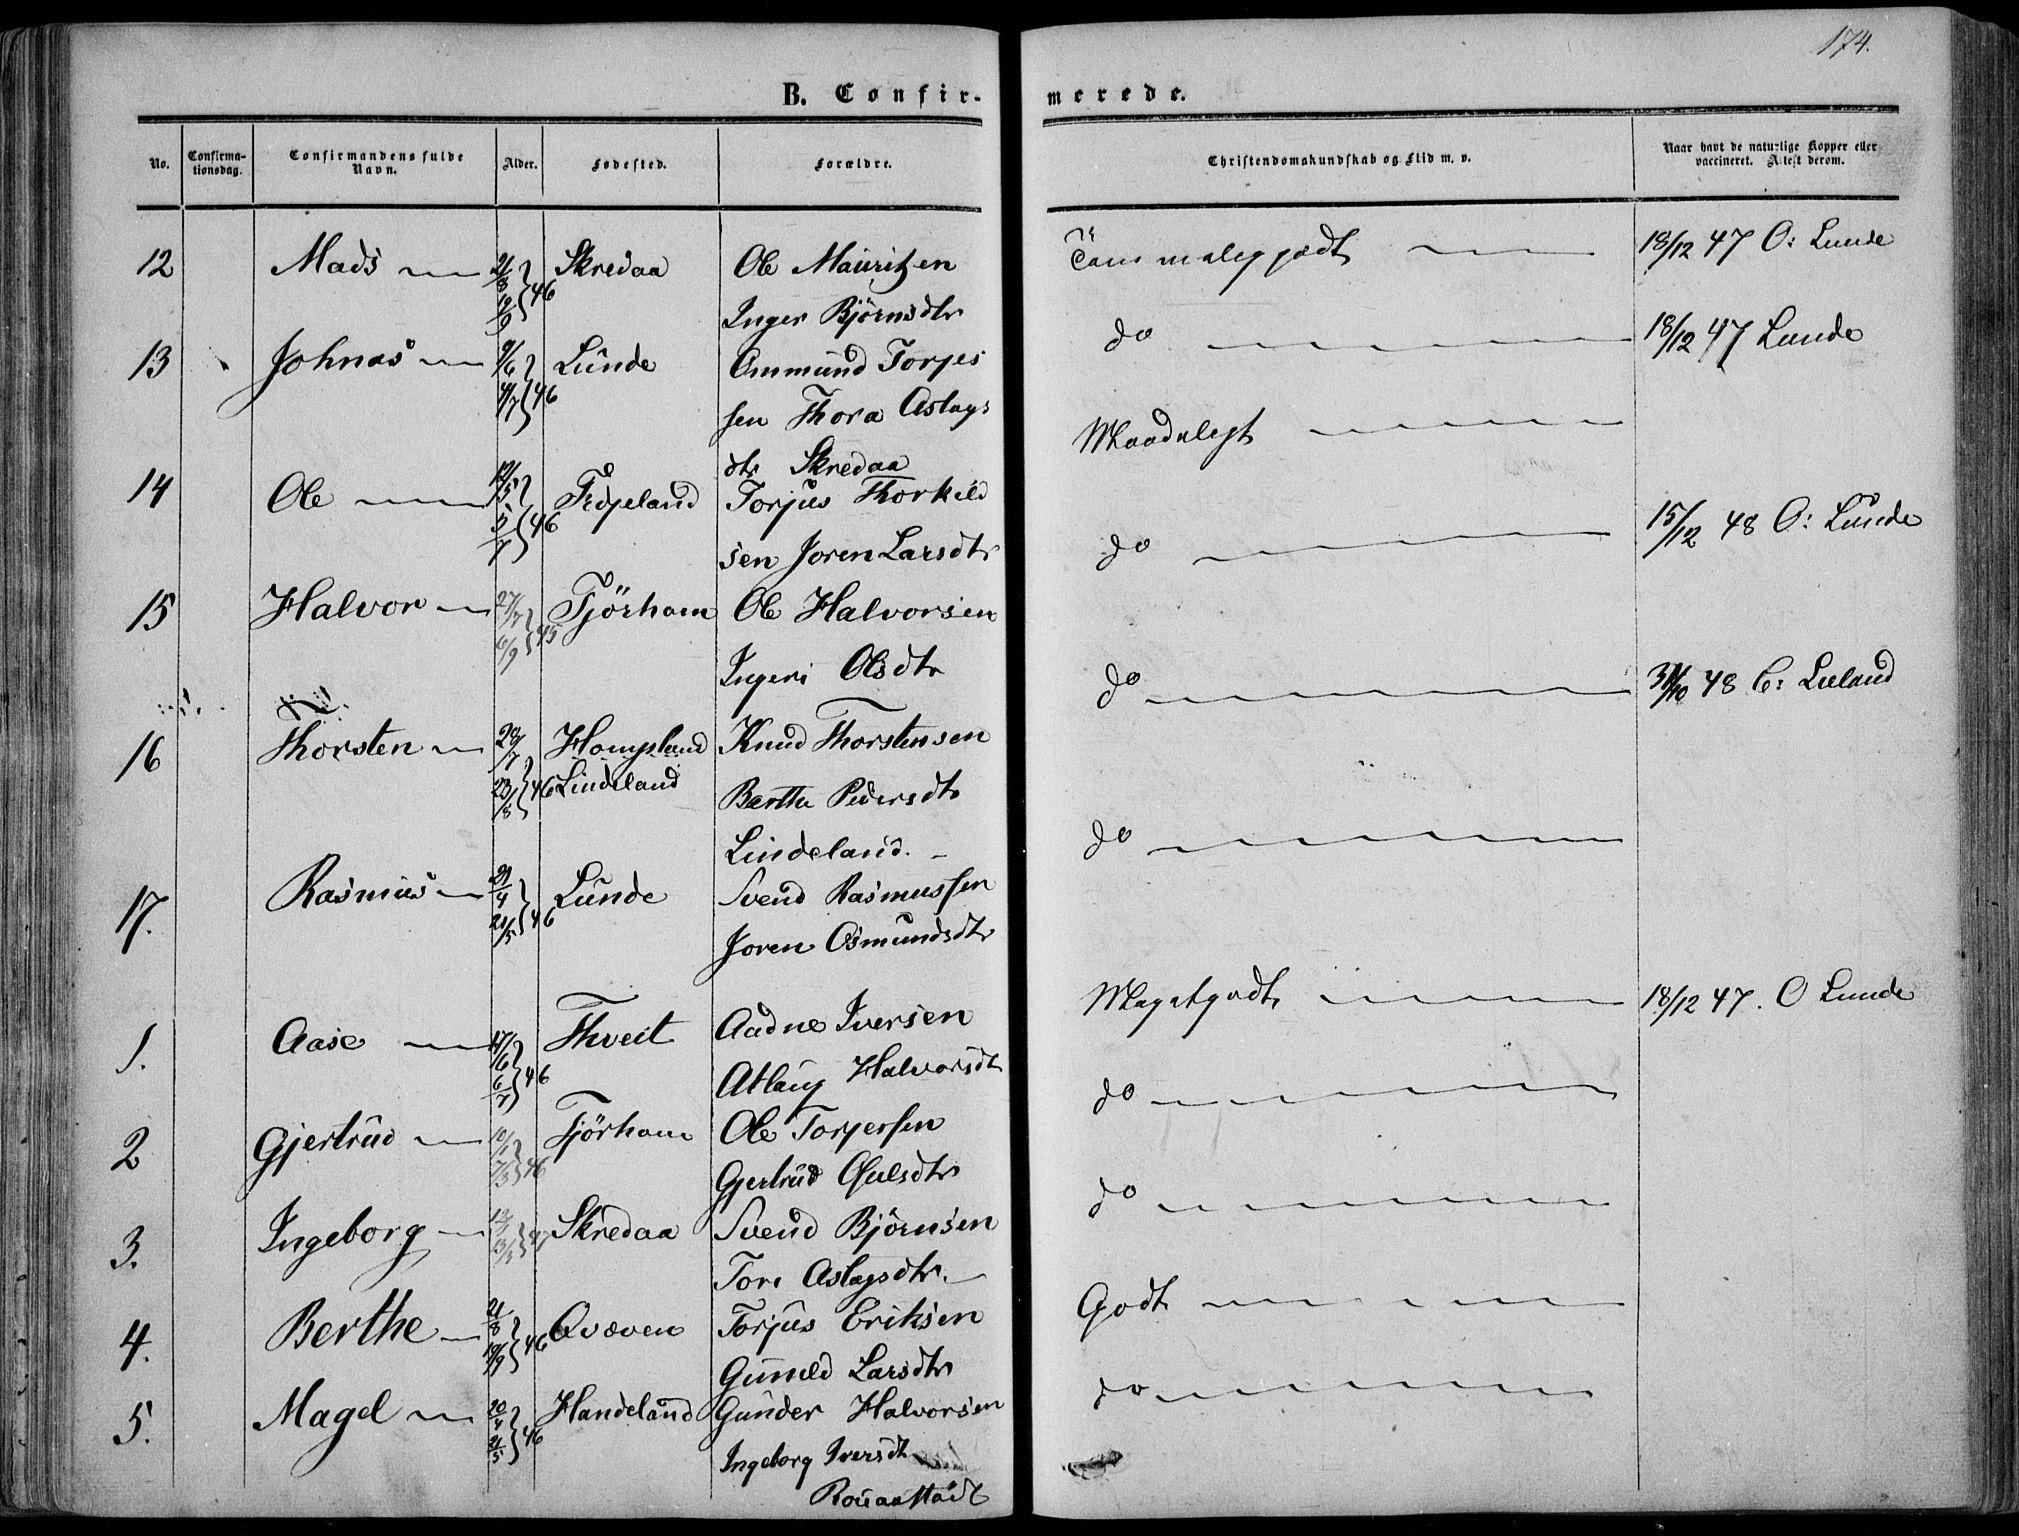 174.
B. Confir-
merede.
No.
Confirma-
tionsdag.
Confirmandens fulde
Navn.
Alder.
Fødested.
Forældre.
Christendomskundskab og Flid m. v.
Naar havt de naturlige Kopper eller
vaccineret. Attest derom.
12 Mads 21/8 19/9 } 46 Skredaa Ole Mauritzen
Inger Bjørnsdtr
Temmeleg godt 18/12 47 O: Lunde
13 Johnas 9/6 4/7 } 46 Lunde Ommund Torjes
sen Thora Aslags
dtr Skredaa
do 18/12 47 Lunde
Maadelegt
14 Ole 12/5 5/7 } 46 Fidjeland Torjus Thorkild
sen Joren Larsdtr
do 15/12 48 O: Lunde
15 Halvor 27/7 6/9 } 45 Tjörhom Ole Halvorsen
Ingeri Olsdtr
do 31/10 48 C: Lieland
16 Thorsten 28/7 23/8 } 46 Hompland
Lindeland
Knud Thorstensen
Berthe Pedersdtr
Lindeland.
do
17. Rasmus 29/4 21/5 } 46 Lunde Svend Rasmussen
Joren Osmundsdtr
Megetgodt 18/12 47. O Lunde
1. Aase 17/6 6/7 } 46 Thveit Aadne Iversen
Atlaug Halvorsdtr
do
2 Gjertrud 10/1 7/3 } 46 Tjörhom Ole Torjersen
Gjertrud Osulsdtr
do
3. Ingeborg Skredaa Svend Bjørnsen
Tore Aslagsdtr.
Godt
4. Berthe 21/8 19/9 } 46 Qvæven Torjus Eriksen
Guneld Larsdtr
do
5. Magel 20/4 21/5 } 46 Handeland Gunder Halvorsen
Ingeborg Iversdt